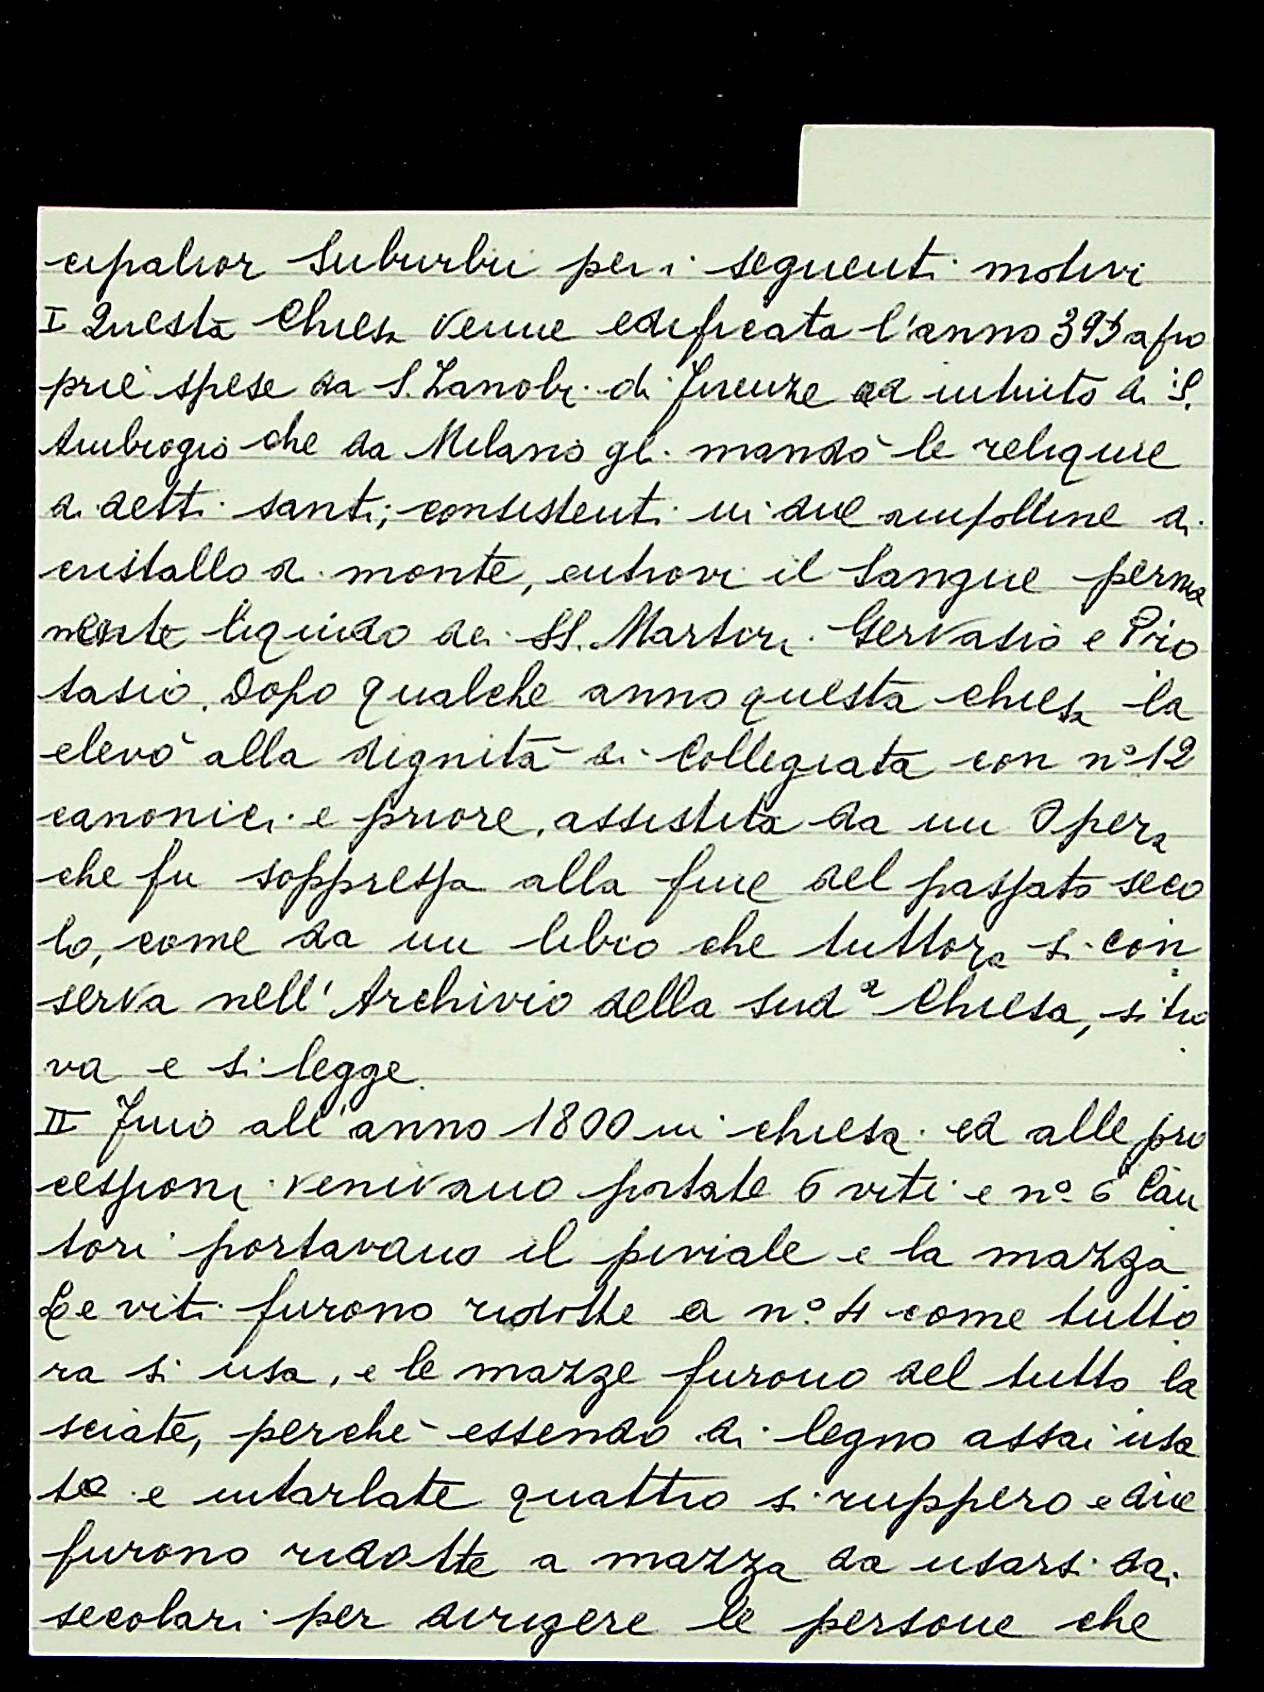 cipalior Suburbii per i seguenti motivi
I Questa Chiesa venne edificata l'anno 393 a pro
prie spese da S. Zanobi di Firenze ed intuito di S.
Ambrogio che da Milano gli mandò le reliquie
di detti santi; consistenti in due ampolline di
cristallo di monte, entrovi il Sangue perma
nente liquido dei SS. Martiri Gervasio e Pro
tasio. Dopo qualche anno questa chiesa la
elevò alla dignità di Collegiata con n° 12
canonici e priore, assistita da un Opera
che fu soppressa alla fine del passato seco
lo, come da un libro che tuttora si con
serva nell'Archivio della sudª Chiesa, si tro
va e si legge.
II Fino all'anno 1800 in chiesa ed alle pro
cessioni venivano portate 6 viti e n° 6 Can
tori portavano il piviale e la mazza
Le viti furono ridotte a n° 4 come tutto
ra si usa, e le mazze furono del tutto la
sciate, perchè essendo di legno assai usa
te e intarlate quattro si ruppero e due
furono ridotte a mazza da usarsi dai
secolari per dirigere le persone che